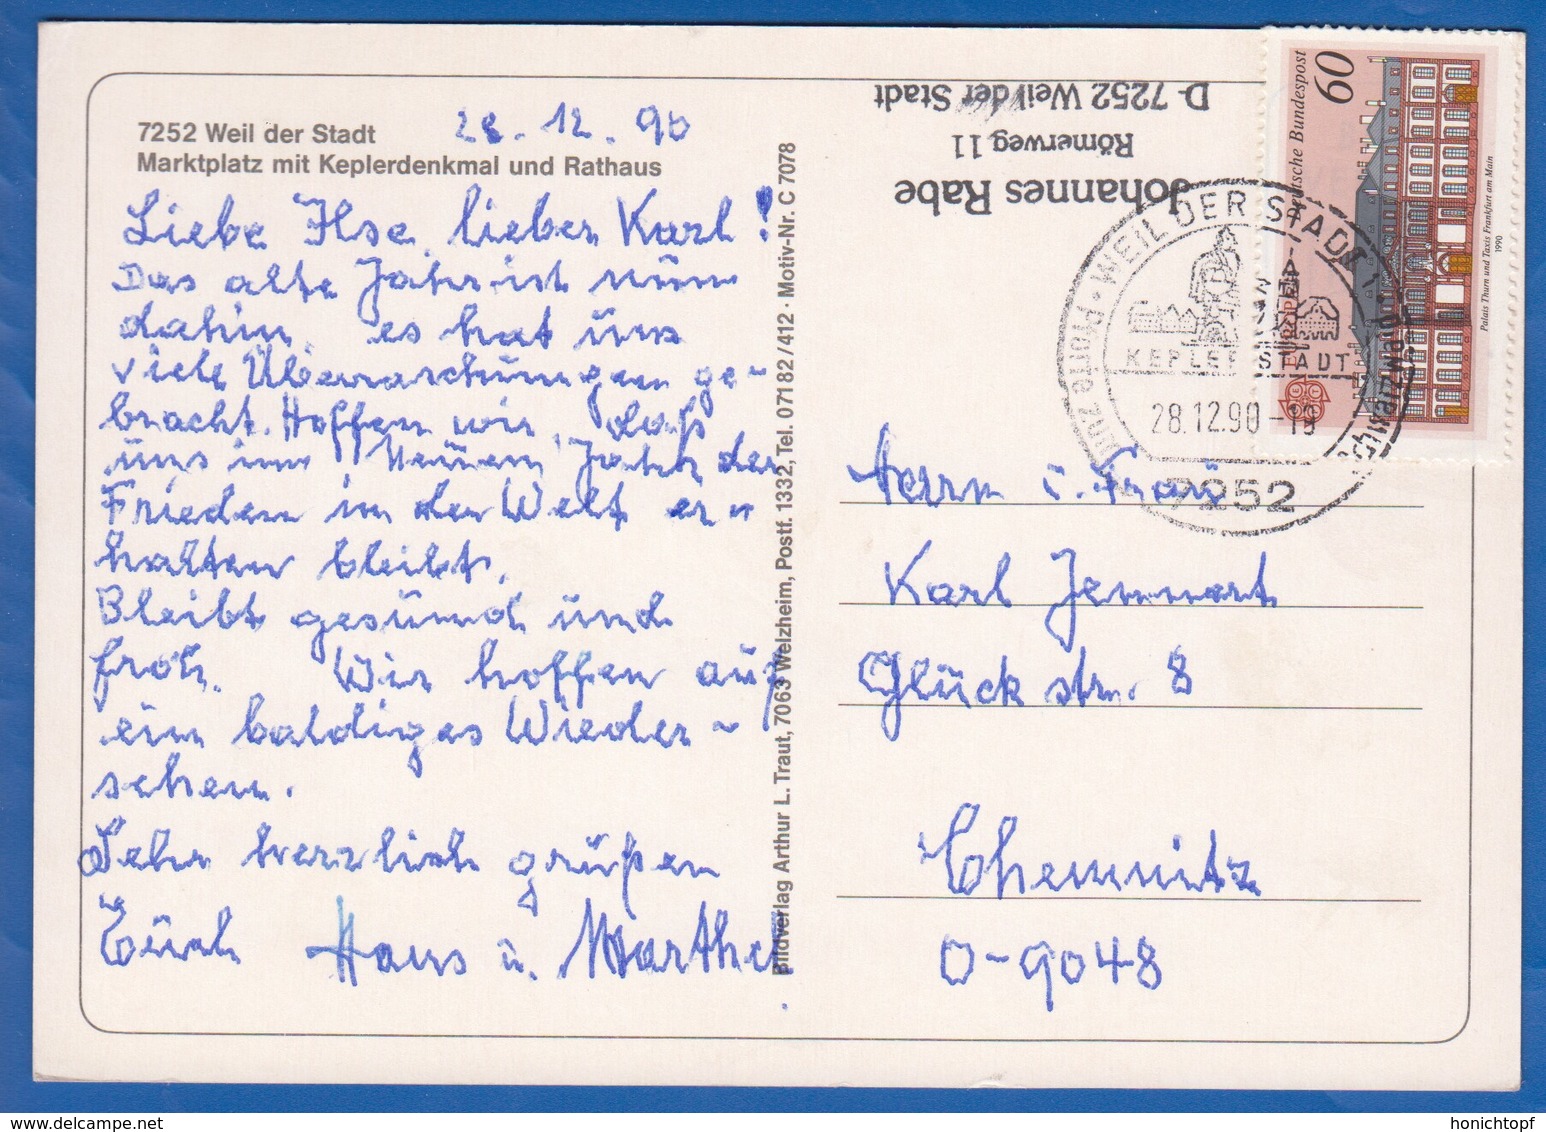 7252 Weil der Stadt
Marktplatz mit Keplerdenkmal und Rathaus
28.12.90
Liebe Ilse, lieber Karl!
Das alte Jahr ist nun
dahin, es hat uns
viele Überraschungen ge-
bracht. Hoffen wir, daß
uns im Neuen Jahr der
Frieden in der Welt er-
halten bleibt.
Bleibt gesund und
froh. Wir hoffen auf
ein baldiges Wieder-
sehen.
Sehr herzlich grüßen
Euch Hans u. Marthel
Bildverlag Arthur L. Traut, 7063 Welzheim, Postf. 1332, Tel. 07182/412 · Motiv-Nr. C 7078
Johannes Rabe
Römerweg 11
D-7252 Weil der Stadt
60
Deutsche Bundespost
EUROPA
Palais Thurn und Taxis Frankfurt am Main
1990
WEIL DER STADT 1
KEPLERSTADT
28.12.90-19
7252
Porta zum
Schwarzwald
Herrn u. Frau
Karl Jennart
Glückstr. 8
Chemnitz
O-9048
honichtopf